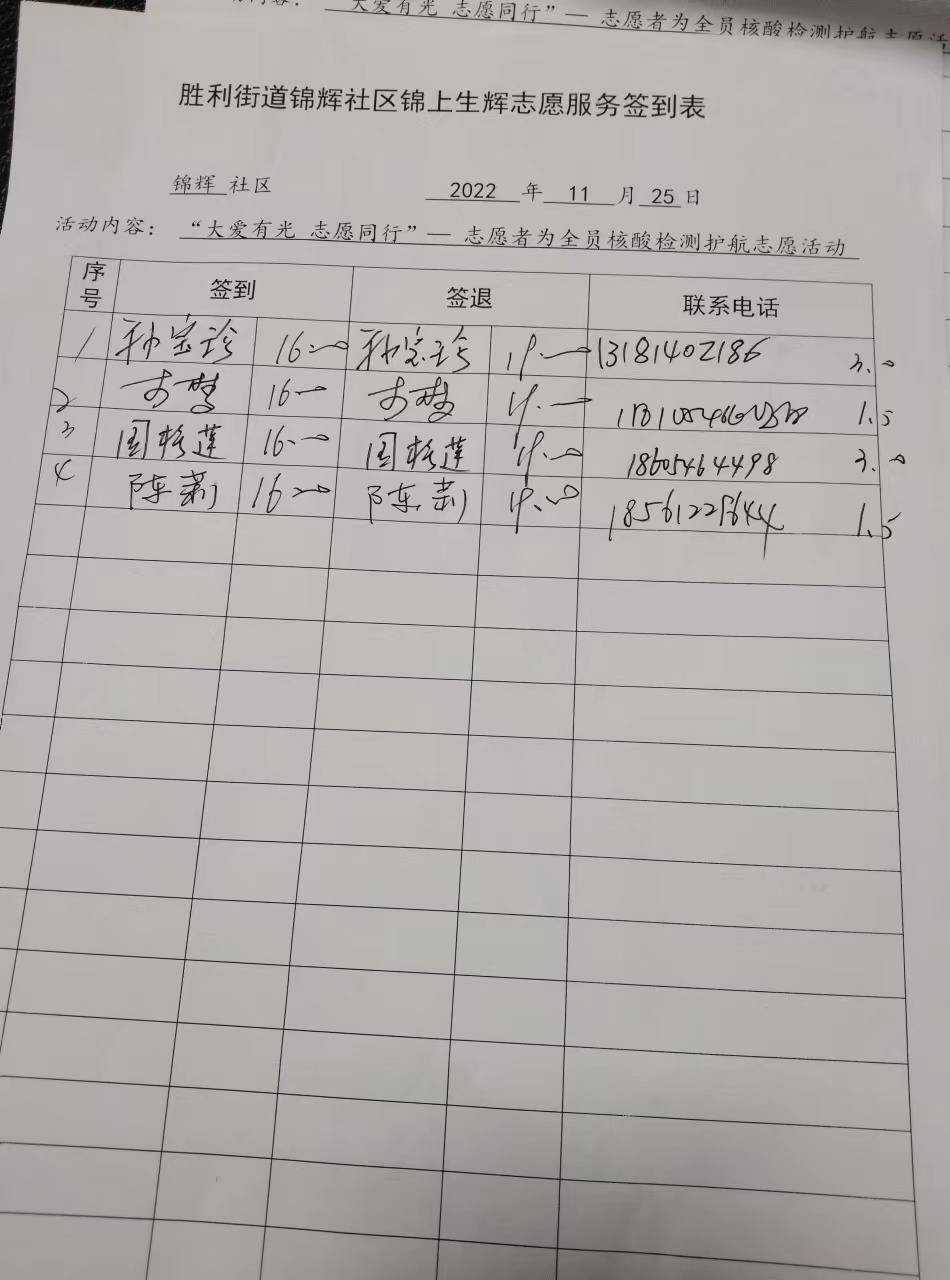 “大爱有光 志愿同行”— 志愿者为全员核酸检测护航志愿活
胜利街道锦辉社区锦上生辉志愿服务签到表
锦辉 社区 2022 年 11 月 25 日
活动内容： “大爱有光 志愿同行”— 志愿者为全员核酸检测护航志愿活动
序号 签到 签退 联系电话
1 孙宝珍 16:00 孙宝珍 19:00 13181402186 3.0
2 16:00 19:00 1.5
3 周格莲 16:00 周格莲 19:00 18605464498 3.0
4 陈莉 16:00 陈莉 19:00 1.5